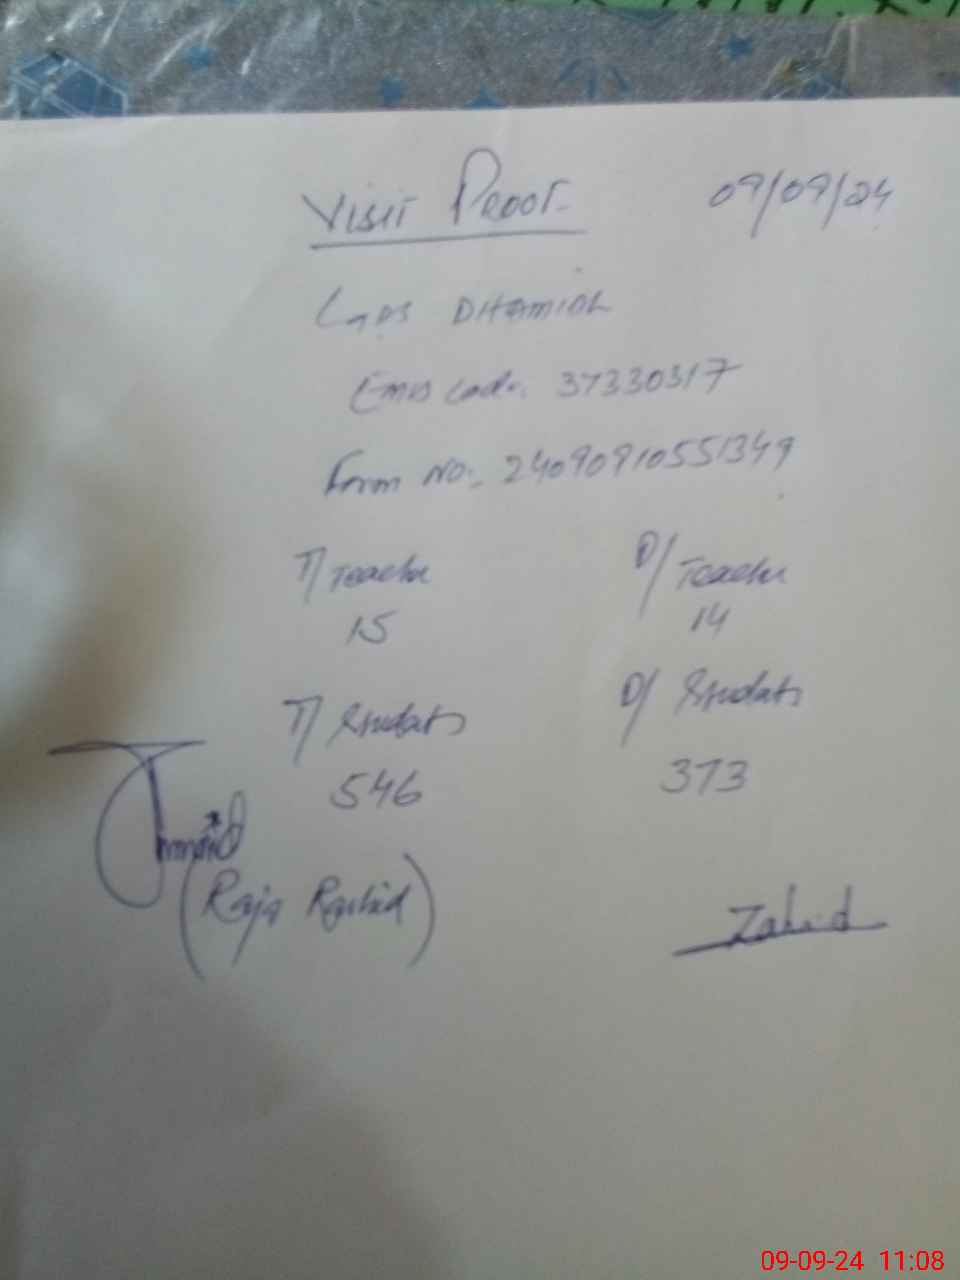 Visit Proof 09/09/24
DHAMIAL
Emis Code: 37330317
Form No: 24090910551349
T/ Teacher O/ Teacher
15 14
T/ Students O/ Students
546 373
(Raja Rashid)
Zahid
09-09-24 11:08